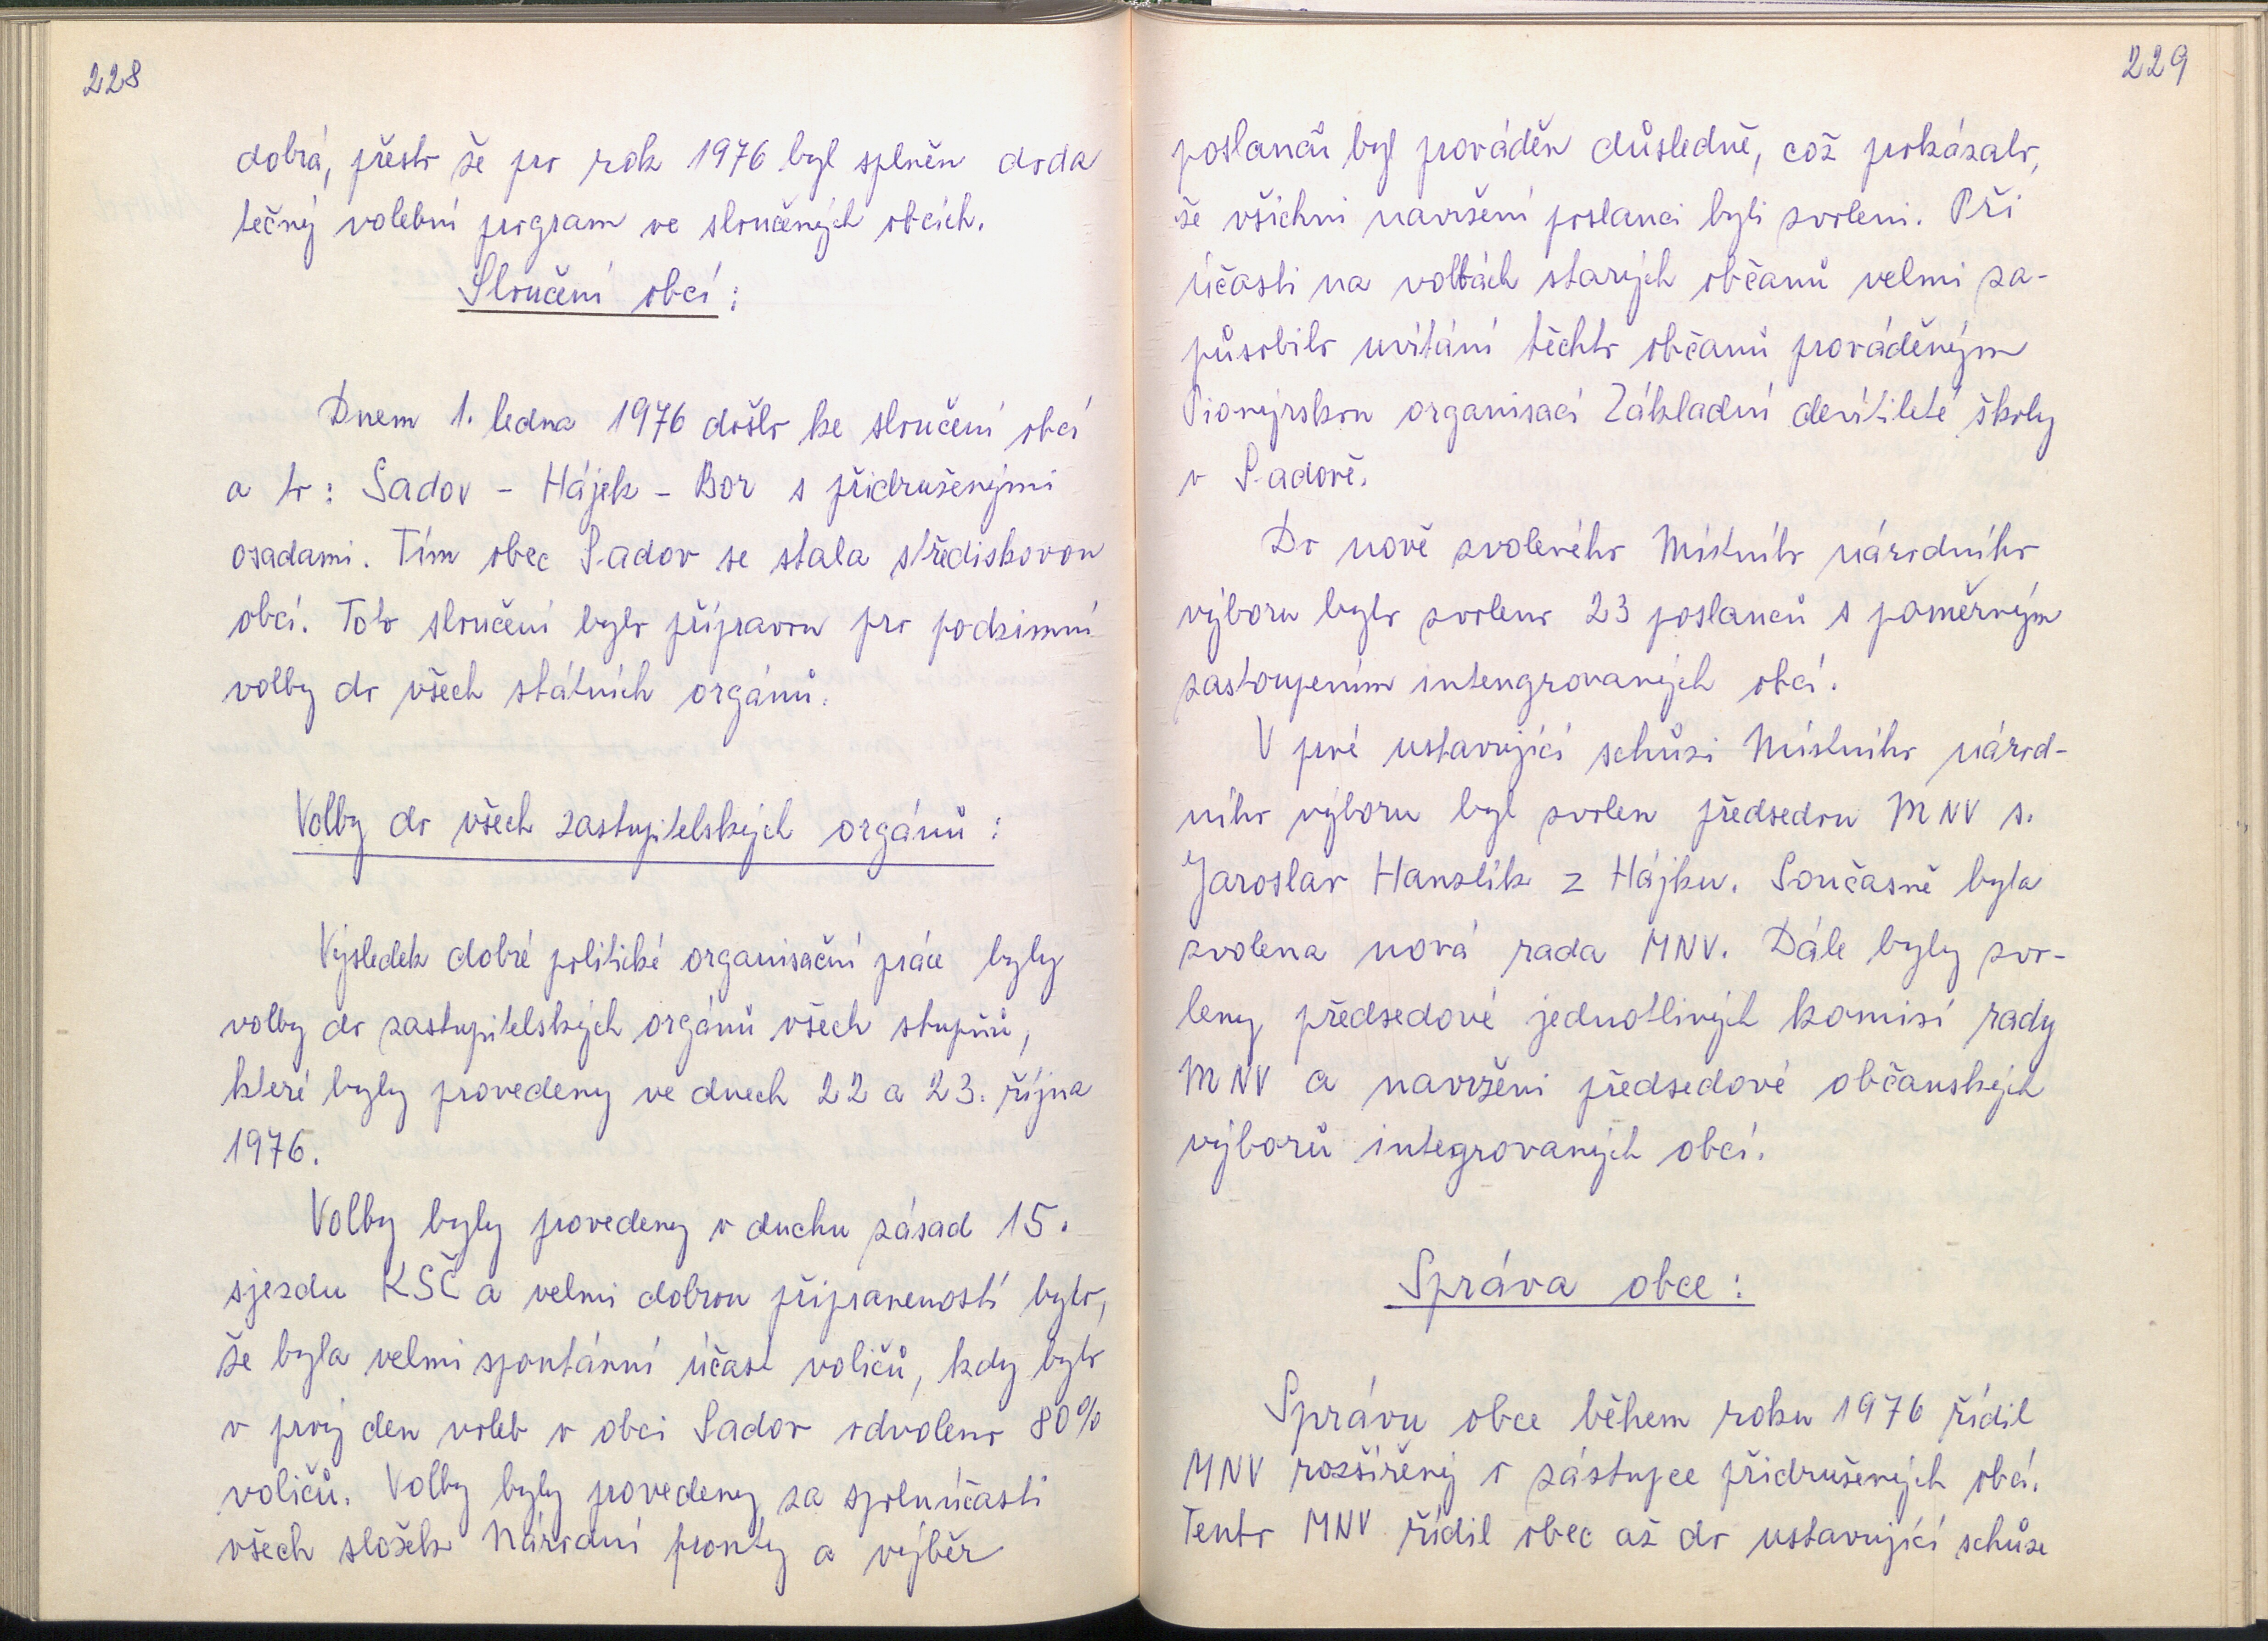 228
dobrá, přesto že pro rok 1976 byl splněn doda
tečný volební program ve sloučených obcích.
Sloučení obcí:
Dnem 1. ledna 1976 došlo ke sloučení obcí
a to: Sadov - Hájek - Bor s přidruženými
osadami. Tím obec Sadov se stala střediskovou
obcí. Toto sloučení bylo přípravou pro podzimní
volby do všech státních orgánů.
Volby do všech zastupitelských orgánů:
Výsledek dobré politické organisační práce byly
volby do zastupitelských orgánů všech stupňů,
které byly provedeny ve dnech 22 a 23. října
1976.
Volby byly provedeny v duchu zásad 15.
sjezdu KSČ a velmi dobrou připraveností bylo,
že byla velmi spontánní účast voličů, kdy bylo
v prvý den voleb v obci Sadov odvoleno 80%
voličů. Volby byly provedeny za spoluúčasti
všech složek Národní fronty a výběr
229
poslanců byl prováděn důsledně, což prokázalo,
že všichni navržení poslanci byli zvoleni. Při
účasti na volbách starých občanů velmi za-
působilo uvítání těchto občanů prováděným
Pionýrskou organisací Základní devítileté školy
v Sadově.
Do nově zvoleného Místního národního
výboru bylo zvoleno 23 poslanců s poměrným
zastoupením intengrovaných obcí.
V prvé ustavující schůzi Místního národ-
ního výboru byl zvolen předsedou MNV s.
Jaroslav Hanzlík z Hájku. Současně byla
zvolena nová rada MNV. Dále byly zvo-
leny předsedové jednotlivých komisí rady
MNV a navrženi předsedové občanských
výborů integrovaných obcí.
Správa obce:
Správu obce během roku 1976 řídil
MNV rozšířený o zástupce přidružených obcí.
Tento MNV řídil obec až do ustavující schůze